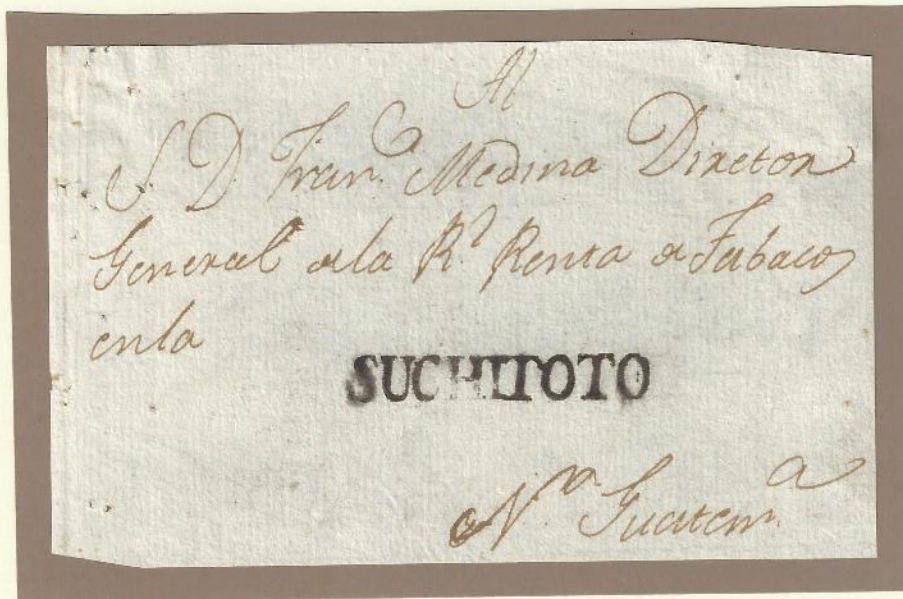 Al
S. D. Fran.co Medina Diretor
General de la R.l Renta de Tabacos
en la
SUCHITOTO
N.a Guatem.a